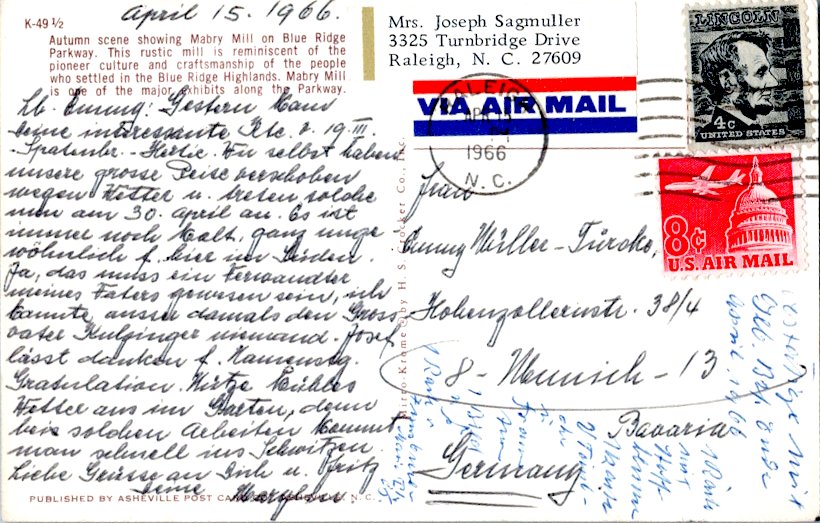 April 15. 1966.
K-49 1/2
Autumn scene showing Mabry Mill on Blue Ridge
Parkway. This rustic mill is reminiscent of the
pioneer culture and craftsmanship of the people
who settled in the Blue Ridge Highlands. Mabry Mill
is one of the major exhibits along the Parkway.
Lb. Emmy: Gestern kam
Deine interessante Kte. v. 19. III.
Spatenbr. - Hertie. Wir selbst haben
unsere grosse Reise verschoben
wegen Wetter u. treten solche
nun am 30. April an. Es ist
immer noch kalt, ganz unge-
wöhnlich f. hier im Süden.
Ja, das muss ein Verwandter
meines Vaters gewesen sein, ich
kannte ausser damals den Gross-
vater Kulzinger niemand. Josef
lässt danken f. Namenstg.
Gratulation. Nütze kühles
Wetter aus im Garten, denn
bei solchen Arbeiten kommt
man schnell ins Schwitzen.
Liebe Grüsse an Dich u. Fritz
Deine
PUBLISHED BY ASHEVILLE POST CARD CO., ASHEVILLE, N. C.
Mirro-Krome by H. S. Crocker Co., Inc.
Mrs. Joseph Sagmuller
3325 Turnbridge Drive
Raleigh, N. C. 27609
VIA AIR MAIL
RALEIGH
APR
1966
N. C.
LINCOLN
4c
UNITED STATES
8c
U.S. AIR MAIL
Frau
Emmy Müller-Türcke,
Hohenzollernstr. 38/4
8 - Munich - 13
Bavaria
Germany